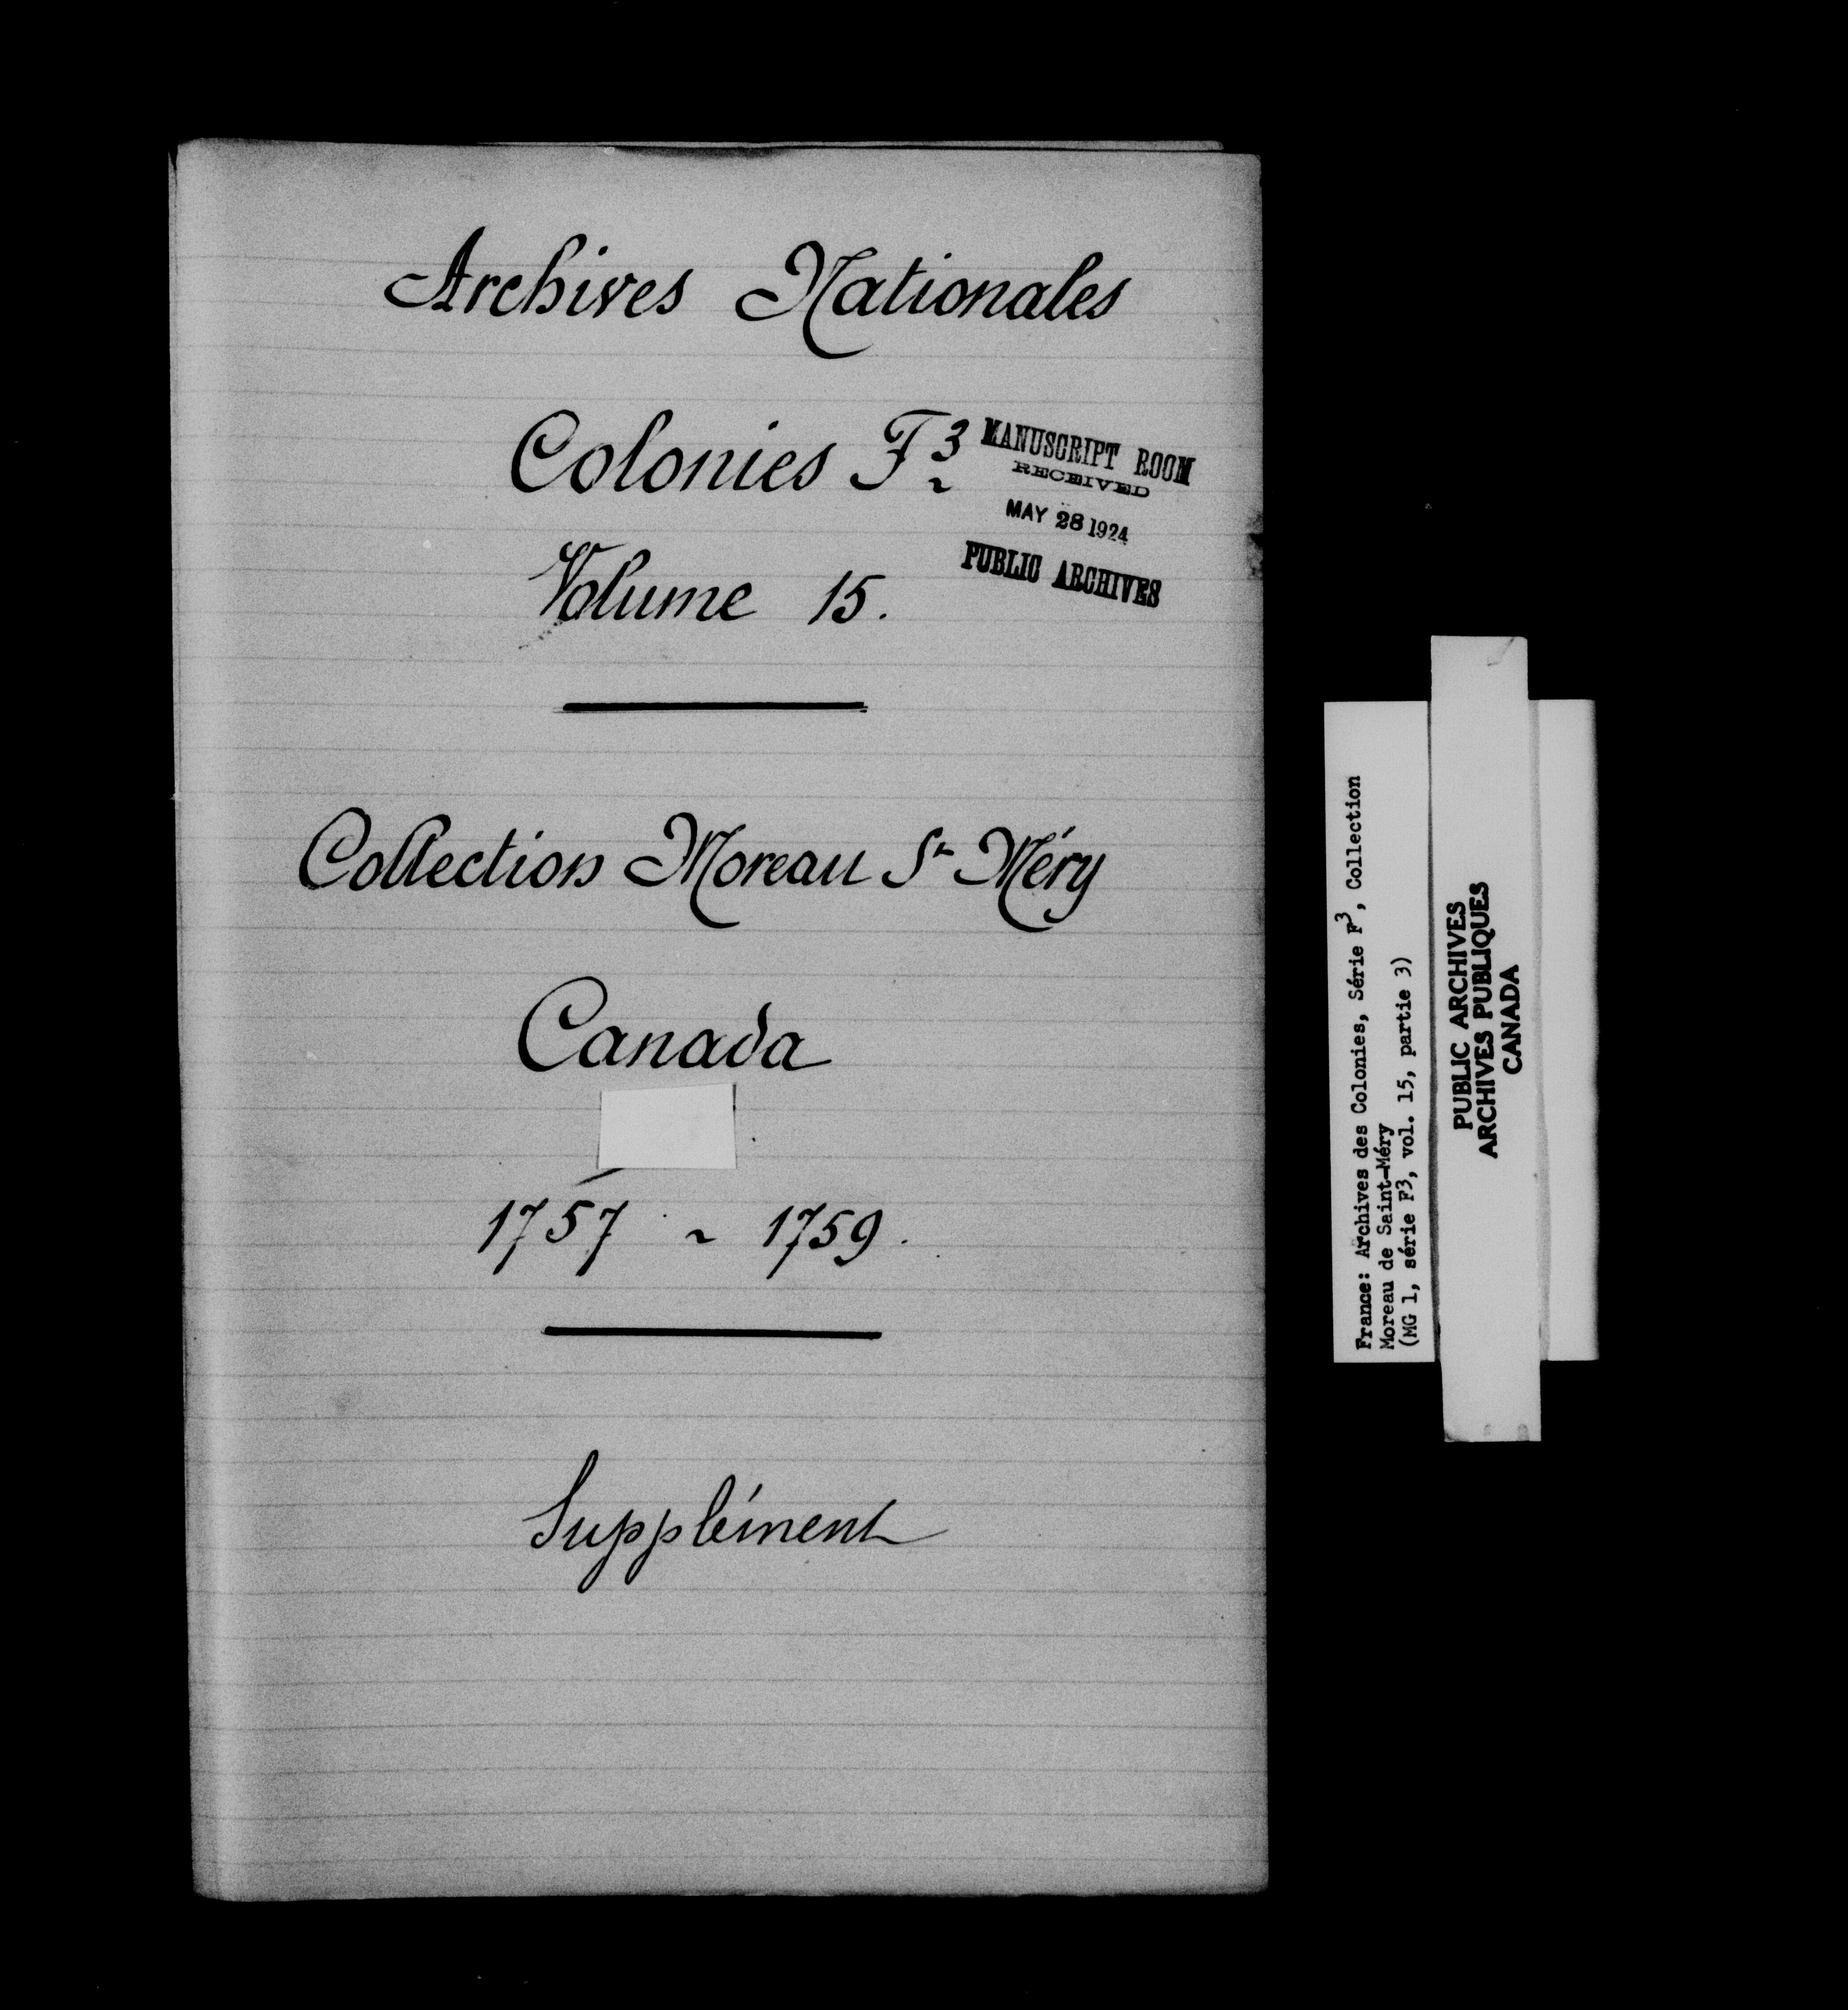 Archives Nationales
Colonies F³
MANUSCRIPT ROOM
RECEIVED
MAY 28 1924
PUBLIC ARCHIVES
Volume 15.
Collection Moreau St Méry
Canada
1757 ~ 1759.
Supplément
France: Archives des Colonies, Série F³, Collection
Moreau de Saint-Méry
(MG 1, série F³, vol. 15, partie 3)
PUBLIC ARCHIVES
ARCHIVES PUBLIQUES
CANADA